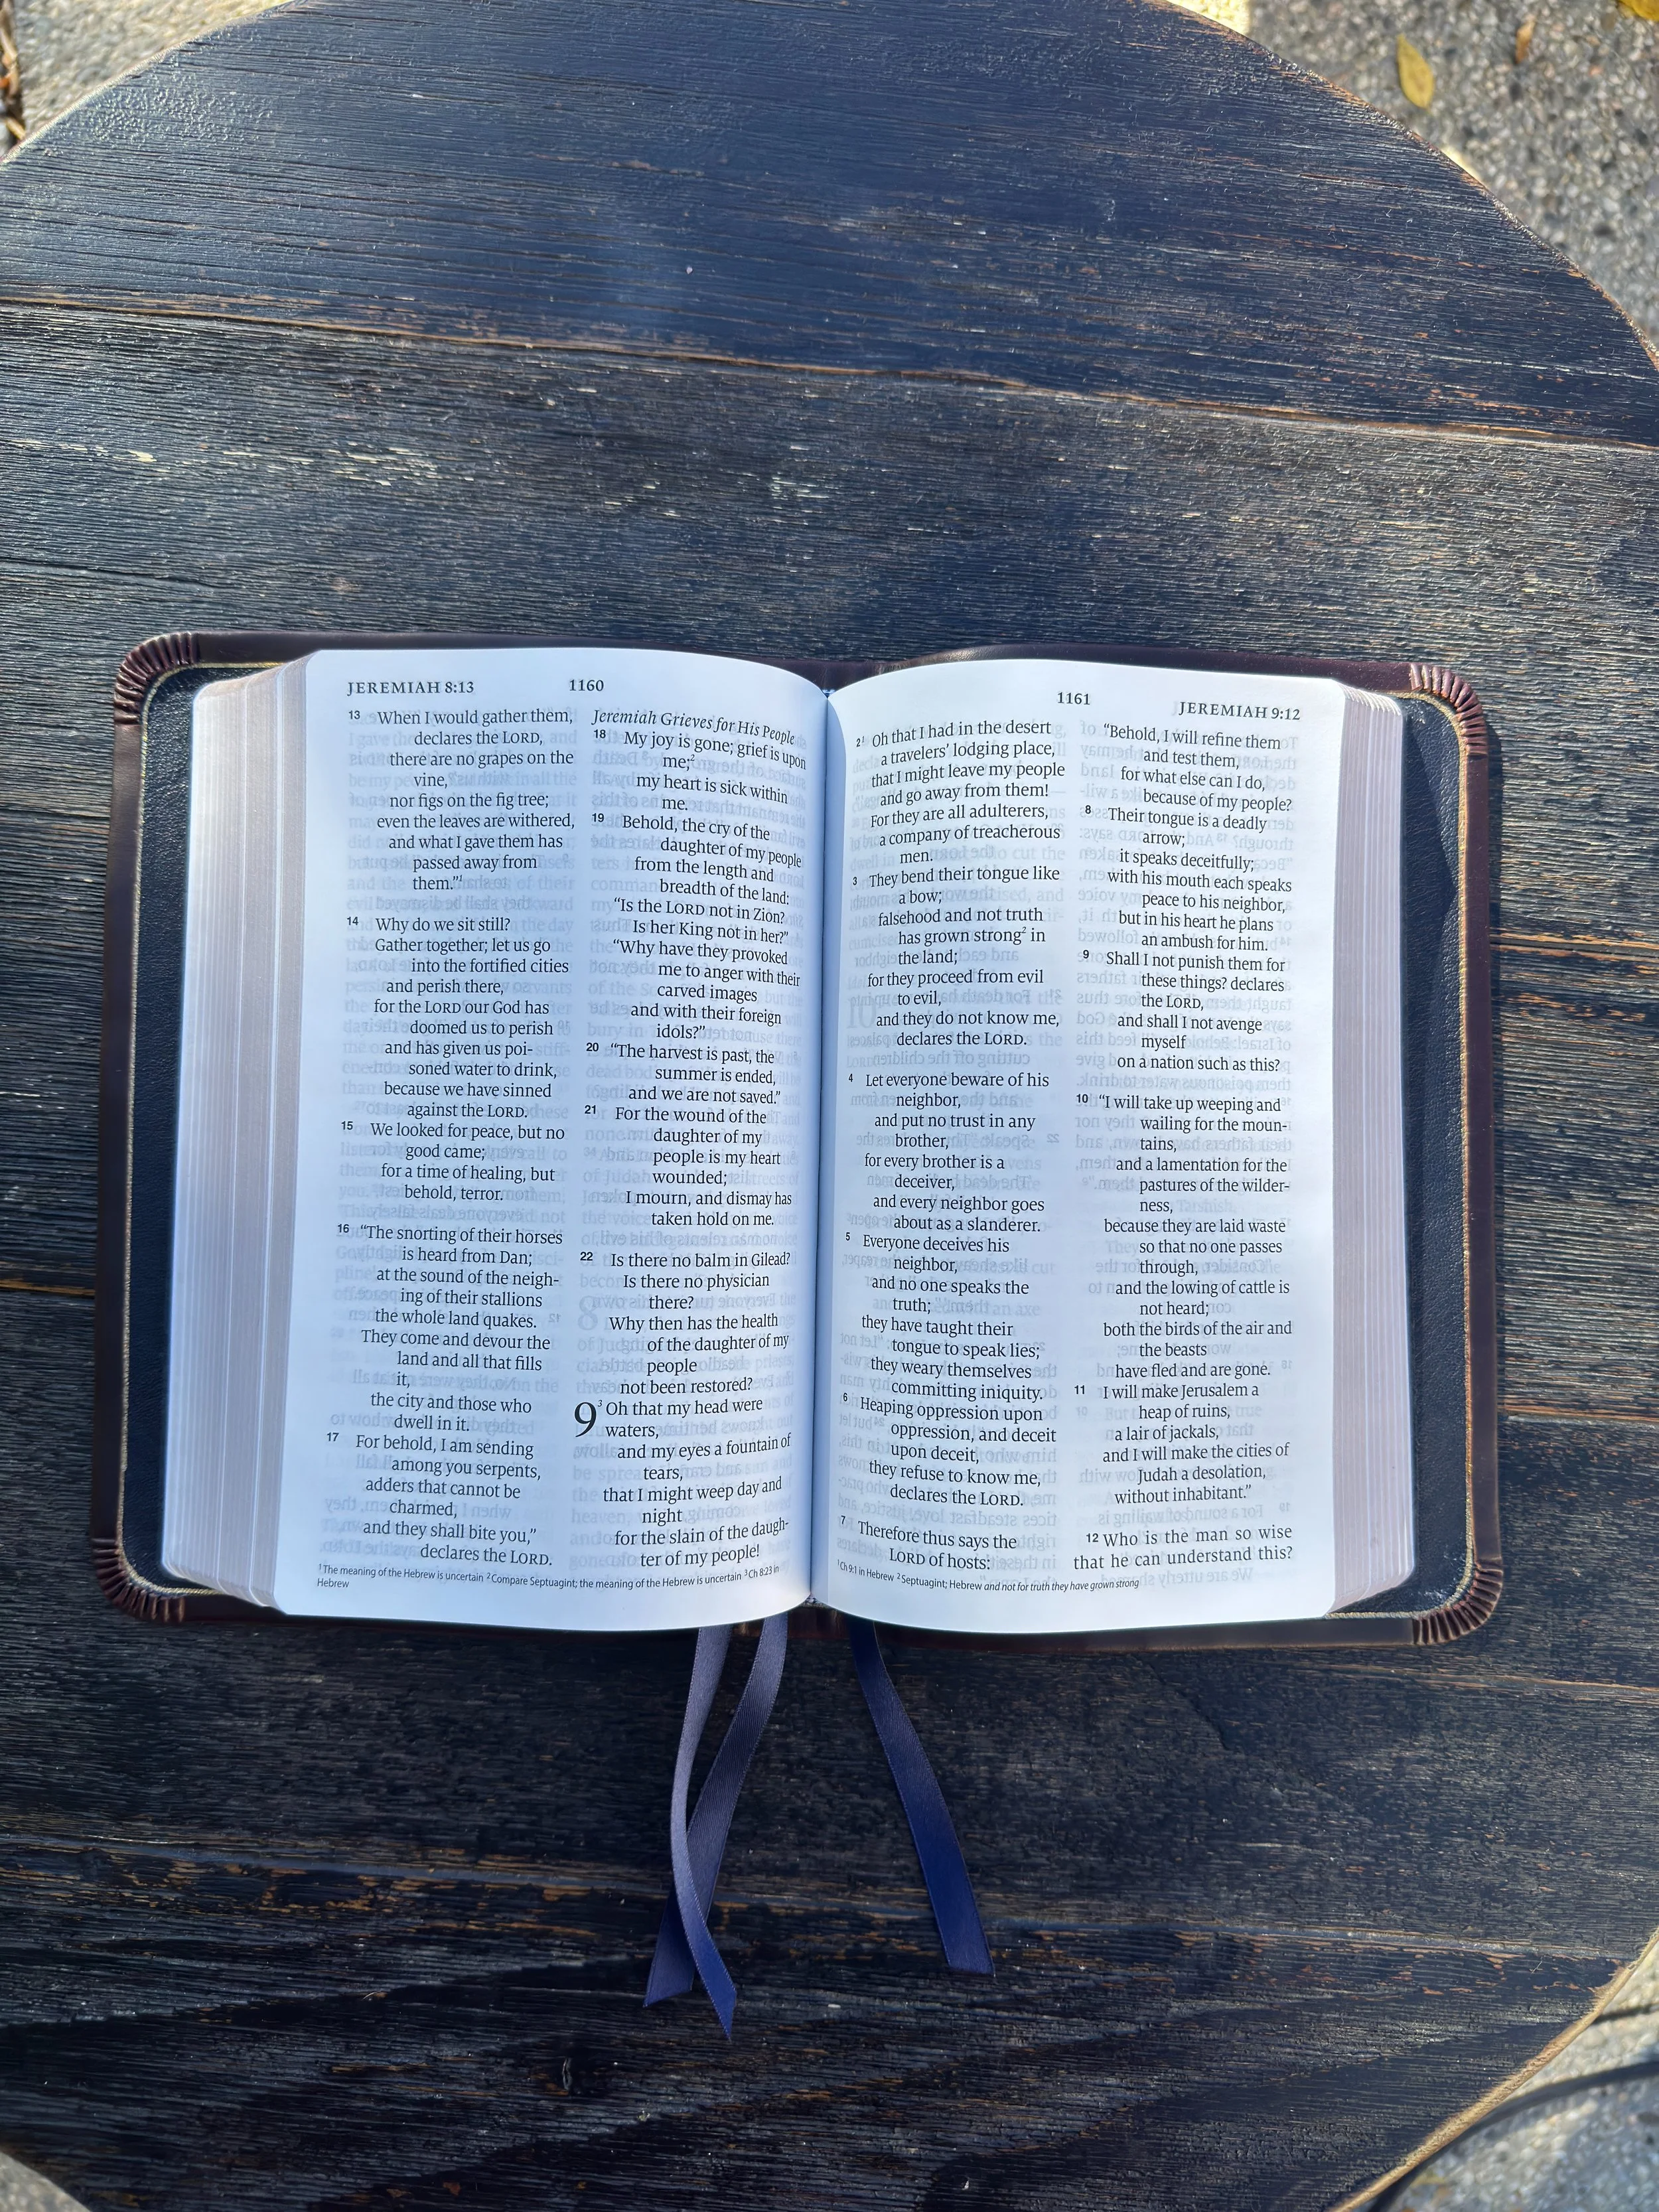 JEREMIAH 8:13
1160
13 When I would gather them,
declares the LORD,
there are no grapes on the
vine,
nor figs on the fig tree;
even the leaves are withered,
and what I gave them has
passed away from
them.”1
14 Why do we sit still?
Gather together; let us go
into the fortified cities
and perish there,
for the LORD our God has
doomed us to perish
and has given us poi-
soned water to drink,
because we have sinned
against the LORD.
15 We looked for peace, but no
good came;
for a time of healing, but
behold, terror.
16 “The snorting of their horses
is heard from Dan;
at the sound of the neigh-
ing of their stallions
the whole land quakes.
They come and devour the
land and all that fills
it,
the city and those who
dwell in it.
17 For behold, I am sending
among you serpents,
adders that cannot be
charmed,
and they shall bite you,”
declares the LORD.
Jeremiah Grieves for His People
18 My joy is gone; grief is upon
me;2
my heart is sick within
me.
19 Behold, the cry of the
daughter of my people
from the length and
breadth of the land:
“Is the LORD not in Zion?
Is her King not in her?”
“Why have they provoked
me to anger with their
carved images
and with their foreign
idols?”
20 “The harvest is past, the
summer is ended,
and we are not saved.”
21 For the wound of the
daughter of my
people is my heart
wounded;
I mourn, and dismay has
taken hold on me.
22 Is there no balm in Gilead?
Is there no physician
there?
Why then has the health
of the daughter of my
people
not been restored?
9 3 Oh that my head were
waters,
and my eyes a fountain of
tears,
that I might weep day and
night
for the slain of the daugh-
ter of my people!
1 The meaning of the Hebrew is uncertain 2 Compare Septuagint; the meaning of the Hebrew is uncertain 3 Ch 8:23 in
Hebrew
1161
JEREMIAH 9:12
2 1 Oh that I had in the desert
a travelers’ lodging place,
that I might leave my people
and go away from them!
For they are all adulterers,
a company of treacherous
men.
3 They bend their tongue like
a bow;
falsehood and not truth
has grown strong2 in
the land;
for they proceed from evil
to evil,
and they do not know me,
declares the LORD.
4 Let everyone beware of his
neighbor,
and put no trust in any
brother,
for every brother is a
deceiver,
and every neighbor goes
about as a slanderer.
5 Everyone deceives his
neighbor,
and no one speaks the
truth;
they have taught their
tongue to speak lies;
they weary themselves
committing iniquity.
6 Heaping oppression upon
oppression, and deceit
upon deceit,
they refuse to know me,
declares the LORD.
7 Therefore thus says the
LORD of hosts:
“Behold, I will refine them
and test them,
for what else can I do,
because of my people?
8 Their tongue is a deadly
arrow;
it speaks deceitfully;
with his mouth each speaks
peace to his neighbor,
but in his heart he plans
an ambush for him.
9 Shall I not punish them for
these things? declares
the LORD,
and shall I not avenge
myself
on a nation such as this?
10 “I will take up weeping and
wailing for the moun-
tains,
and a lamentation for the
pastures of the wilder-
ness,
because they are laid waste
so that no one passes
through,
and the lowing of cattle is
not heard;
both the birds of the air and
the beasts
have fled and are gone.
11 I will make Jerusalem a
heap of ruins,
a lair of jackals,
and I will make the cities of
Judah a desolation,
without inhabitant.”
12 Who is the man so wise
that he can understand this?
1 Ch 9:1 in Hebrew 2 Septuagint; Hebrew and not for truth they have grown strong